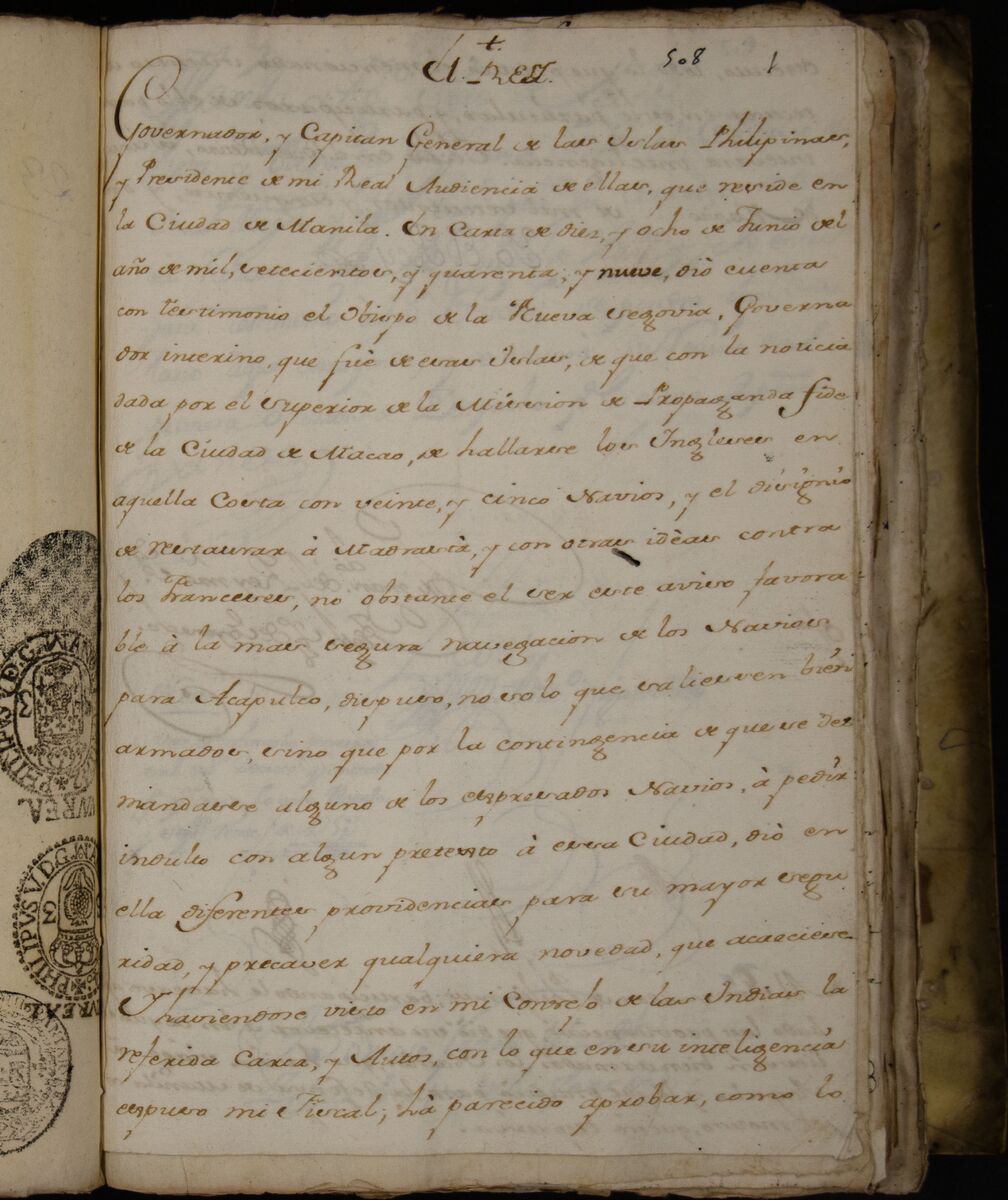 +
El REY.
508 1
Governador, y Capitan General de las Islas Philipinas,
y Presidente de mi Real Audiencia de ellas, que reside en
la Ciudad de Manila. En Carta de diez, y ocho de Junio del
año de mil, setecientos, y quarenta, y nueve, diò cuenta
con testimonio el Obispo de la Nueva segovia, Governa
dor interino, que fuè de esas Islas, de que con la noticia
dada por el superior de la Mission de Propaganda fide
de la Ciudad de Macao, de hallarse los Ingleses en
aquella Costa con veinte, y cinco Navios, y el disignio
de restaurar à Madrastà, y con otras idèas contra
los Franceses, no obstante el ser este aviso favora
ble à la mas segura navegacion de los Navios
para Acapulco, dispuso, no solo que saliessen bien
armados, sino que por la contingencia de que se des
mandasse alguno de los expresados Navios, à pedir
indulto con algun pretexto à essa Ciudad, diò en
ella diferentes providencias para su mayor segu
ridad, y precaver qualquiera novedad, que acaeciese.
Y haviendose visto en mi Consejo de las Indias la
referida Carta, y Autos, con lo que en su inteligencia
expuso mi Fiscal; hà parecido aprobar, como lo
PHILIPUS V.D.G.
PHILIPUS V.D.G.